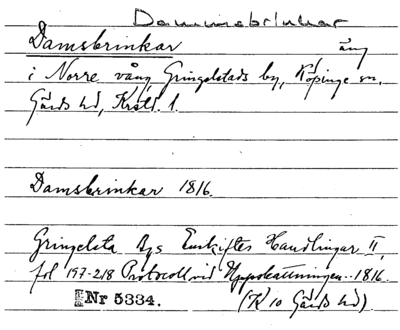 Dammsbrinkar
Damsbrinkar äng
i Norre vång, Gringelstads by, Köpinge sn,
Gärds hd, Krstd. l.
Damsbrinkar 1816.
Gringelsta Bys Enskiftes Handlingar II,
fol 197-218 Protocoll vid Uppskattningen 1816.
Nr 5334. (K 10 Gärds hd).